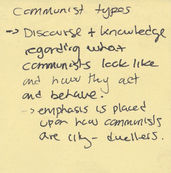 Communist types
-> Discourse + knowledge
regarding what
communists look like
and how they act
and behave.
-> emphasis is placed
upon how communists
are city-dwellers.